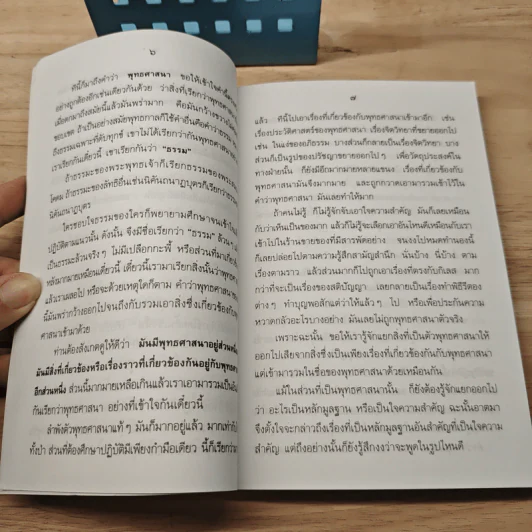 ๖
ทีนี้ก็มาถึงคำว่า พุทธศาสนา ขอให้เข้าใจคำนี้
อย่างถูกต้องอีกเช่นเดียวกันด้วย ว่าสิ่งที่เรียกว่าพุทธศาสนา
เมื่อตกมาถึงสมัยนี้แล้วมันพร่ามาก คือมันกว้างขวาง
ขอบเขต ถ้าเป็นอย่างสมัยพุทธกาลก็ใช้คำอื่นคือคำว่าธรรม
ถึงธรรมเฉพาะที่ดับทุกข์ เขาไม่ได้เรียกว่ากันพุทธศาสนา
เราเรียกกันเดี๋ยวนี้ เขาเรียกกันว่า "ธรรม"
ถ้าธรรมะของพระพุทธเจ้าก็เรียกธรรมของพระสมณ
โคดม ถ้าธรรมของลัทธิอื่นเช่นนิคันถนาฏบุตรก็เรียกว่าธรรม
นิคันถนาฏบุตร
ใครชอบใจธรรมของใครก็พยายามศึกษาจนเข้าใจ
ปฏิบัติตามแนวนั้น ดังนั้น จึงมีชื่อเรียกว่า "ธรรม" ล้วน ๆ
เป็นธรรมะล้วนจริงๆ ไม่มีเปลือกกะพี้ หรือส่วนที่มาเกี่ยว
หลังมากมายเหมือนเดี๋ยวนี้ เดี๋ยวนี้เรามาเรียกสิ่งนั้นว่าพุทธศาสนา
แล้วเราเผลอไป หรือจะด้วยเหตุใดก็ตาม คำว่า พุทธศาสนา
นี้มันพร่ากว้างออกไปจนถึงกับรวมเอาสิ่งซึ่งเกี่ยวข้องกับ
ศาสนาเข้ามาด้วย
ท่านต้องสังเกตดูให้ดีว่า มันมีพุทธศาสนาอยู่ส่วนหนึ่ง
มันมีสิ่งที่เกี่ยวข้องหรือเรื่องราวที่เกี่ยวข้องกันอยู่กับพุทธศาสนา
อีกส่วนหนึ่ง ส่วนนี้มากมายเหลือเกินแล้วเราเอามารวมเป็น
กันเรียกว่าพุทธศาสนา อย่างที่เข้าใจกันเดี๋ยวนี้
ลำพังตัวพุทธศาสนาแท้ๆ มันก็มากอยู่แล้ว มากเท่ากับ
ทั้งป่า ส่วนที่ต้องศึกษาปฏิบัติมีเพียงกำมือเดียว นี้ก็เรียกว่า
๗
แล้ว ทีนี้ไปเอาเรื่องที่เกี่ยวข้องกับพุทธศาสนาเข้ามาอีก เช่น
เรื่องประวัติศาสตร์ของพุทธศาสนา เรื่องจิตวิทยาที่ขยายออกไป
เช่น ในแง่ของอภิธรรม บางส่วนก็กลายเป็นเรื่องจิตวิทยา บาง
ส่วนก็เป็นรูปของปรัชญาขยายออกไปๆ เพื่อวัตถุประสงค์ใน
ทางฝ่ายนั้น ก็ยังมีอีกมากมายหลายแขนง เรื่องที่เกี่ยวกับ
พุทธศาสนามันจึงมากมาย และถูกกวาดเอามารวมเข้าไว้ใน
คำว่าพุทธศาสนา มันเลยทำให้มาก
ถ้าคนไม่รู้ ก็ไม่รู้จักจับเอาใจความสำคัญ มันก็เลยเหมือน
กับว่าเห็นเป็นของมาก แล้วก็ไม่รู้จะเลือกเอาอันไหนดีเหมือนกับเรา
เข้าไปในร้านขายของที่มีสารพัดอย่าง จนงงไปหมดทำนองนี้
ก็เลยปล่อยไปตามความรู้สึกสามัญสำนึก นั่นบ้าง นี่บ้าง ตาม
เรื่องตามราว แล้วส่วนมากก็ไปถูกเอาเรื่องที่ตรงกับกิเลส มาก
กว่าที่จะเป็นเรื่องของสติปัญญา เลยกลายเป็นเรื่องทำพิธีรีตอง
ต่างๆ ทำบุญพอสักแต่ว่าให้แล้วๆ ไป หรือเพื่อประกันความ
หวาดกลัวอะไรบางอย่าง มันเลยไม่ถูกพุทธศาสนาตัวจริง
เพราะฉะนั้น ขอให้เรารู้จักแยกสิ่งที่เป็นตัวพุทธศาสนาให้
ออกไปเสียจากสิ่งซึ่งเป็นเพียงเรื่องที่เกี่ยวข้องกันกับพุทธศาสนา
แต่เข้ามารวมในชื่อของพุทธศาสนาด้วยเหมือนกัน
แม้ในส่วนที่เป็นพุทธศาสนานั้น ก็ยังต้องรู้จักแยกออกไป
ว่า อะไรเป็นหลักมูลฐาน หรือเป็นใจความสำคัญ ฉะนั้นอาตมา
จึงตั้งใจจะกล่าวถึงเรื่องที่เป็นหลักมูลฐานอันสำคัญที่เป็นใจความ
สำคัญ แต่ถึงอย่างนั้นก็ยังรู้สึกงงว่าจะพูดในรูปไหนดี